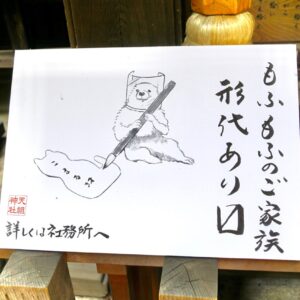 もふもふのご家族
形代あり〼
詳しくは社務所へ